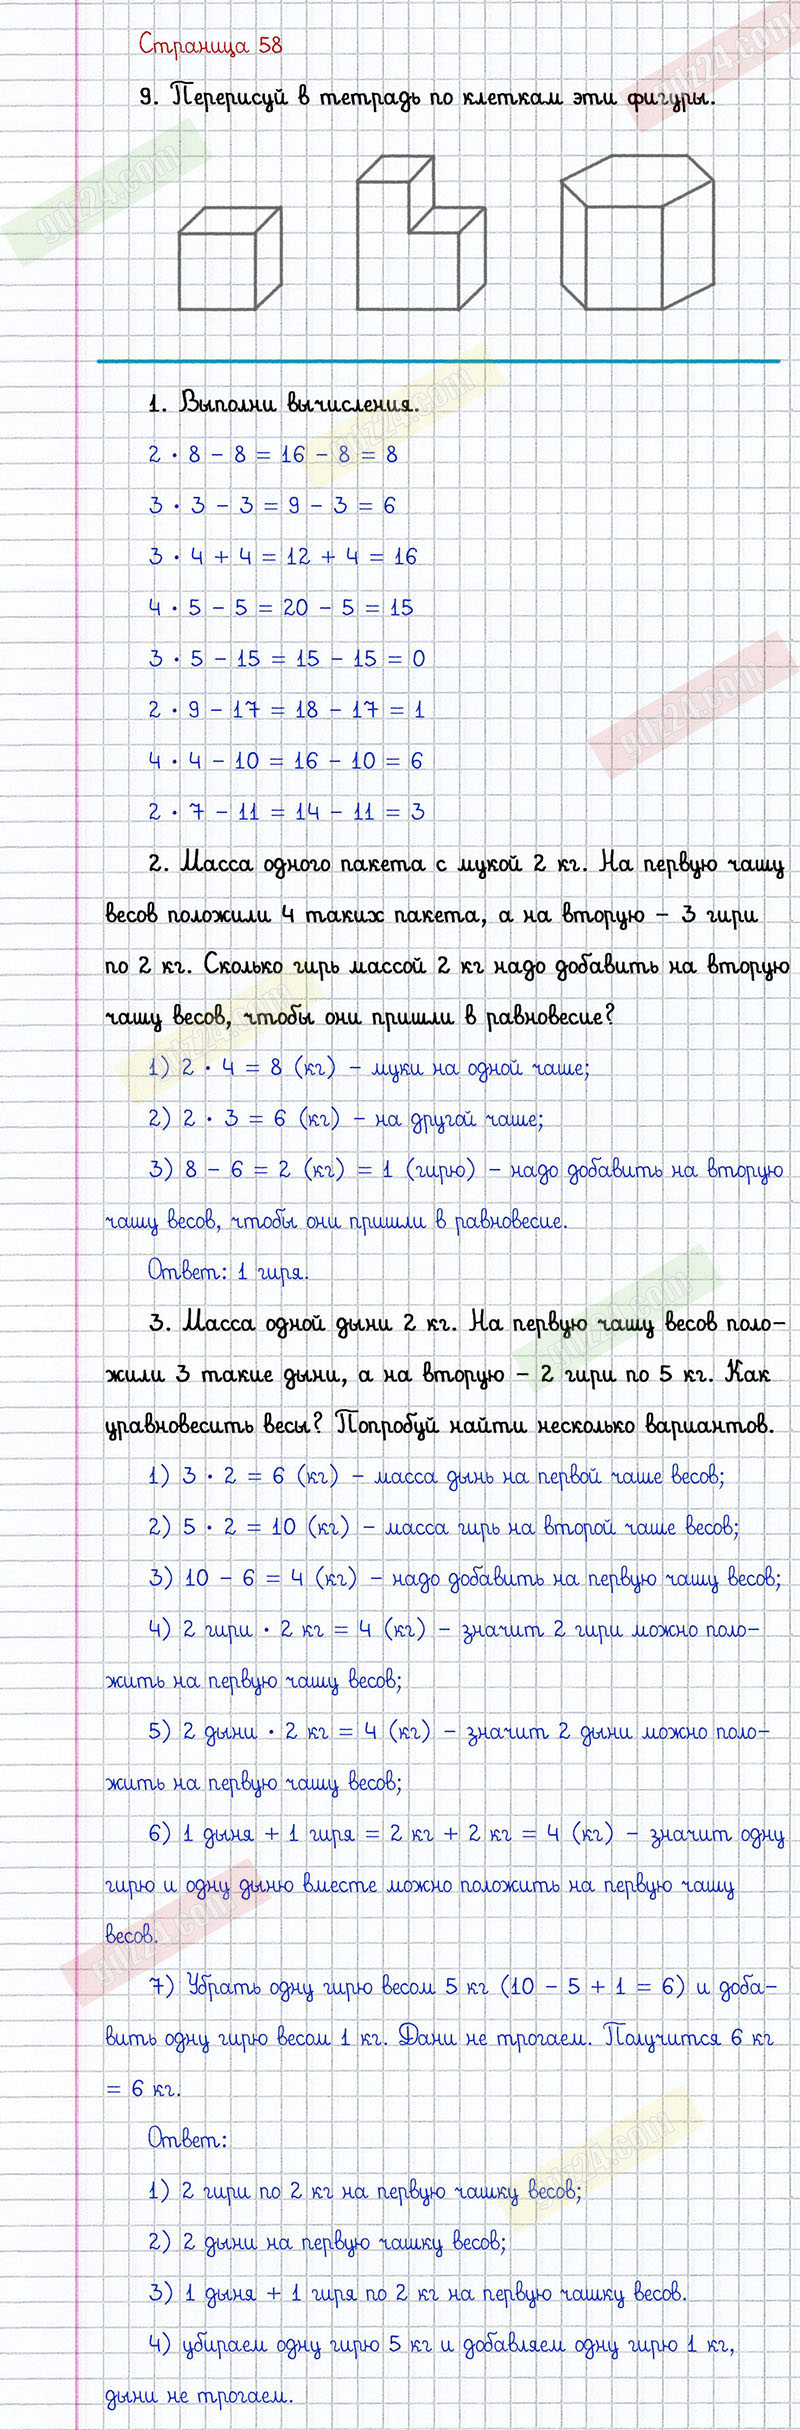 Страница 58
9. Перерисуй в тетрадь по клеткам эти фигуры.
1. Выполни вычисления.
2 · 8 – 8 = 16 – 8 = 8
3 · 3 – 3 = 9 – 3 = 6
3 · 4 + 4 = 12 + 4 = 16
4 · 5 – 5 = 20 – 5 = 15
3 · 5 – 15 = 15 – 15 = 0
2 · 9 – 17 = 18 – 17 = 1
4 · 4 – 10 = 16 – 10 = 6
2 · 7 – 11 = 14 – 11 = 3
2. Масса одного пакета с мукой 2 кг. На первую чашу
весов положили 4 таких пакета, а на вторую – 3 гири
по 2 кг. Сколько гирь массой 2 кг надо добавить на вторую
чашу весов, чтобы они пришли в равновесие?
1) 2 · 4 = 8 (кг) – муки на одной чаше;
2) 2 · 3 = 6 (кг) – на другой чаше;
3) 8 – 6 = 2 (кг) = 1 (гирю) – надо добавить на вторую
чашу весов, чтобы они пришли в равновесие.
Ответ: 1 гиря.
3. Масса одной дыни 2 кг. На первую чашу весов поло–
жили 3 такие дыни, а на вторую – 2 гири по 5 кг. Как
уравновесить весы? Попробуй найти несколько вариантов.
1) 3 · 2 = 6 (кг) – масса дынь на первой чаше весов;
2) 5 · 2 = 10 (кг) – масса гирь на второй чаше весов;
3) 10 – 6 = 4 (кг) – надо добавить на первую чашу весов;
4) 2 гири · 2 кг = 4 (кг) – значит 2 гири можно поло–
жить на первую чашу весов;
5) 2 дыни · 2 кг = 4 (кг) – значит 2 дыни можно поло–
жить на первую чашу весов;
6) 1 дыня + 1 гиря = 2 кг + 2 кг = 4 (кг) – значит одну
гирю и одну дыню вместе можно положить на первую чашу
весов.
7) Убрать одну гирю весом 5 кг (10 – 5 + 1 = 6) и доба–
вить одну гирю весом 1 кг. Дани не трогаем. Получится 6 кг
= 6 кг.
Ответ:
1) 2 гири по 2 кг на первую чашку весов;
2) 2 дыни на первую чашку весов;
3) 1 дыня + 1 гиря по 2 кг на первую чашку весов.
4) убираем одну гирю 5 кг и добавляем одну гирю 1 кг,
дыни не трогаем.
gdz24.com
gdz24.com
gdz24.com
gdz24.com
gdz24.com
gdz24.com
gdz24.com
gdz24.com